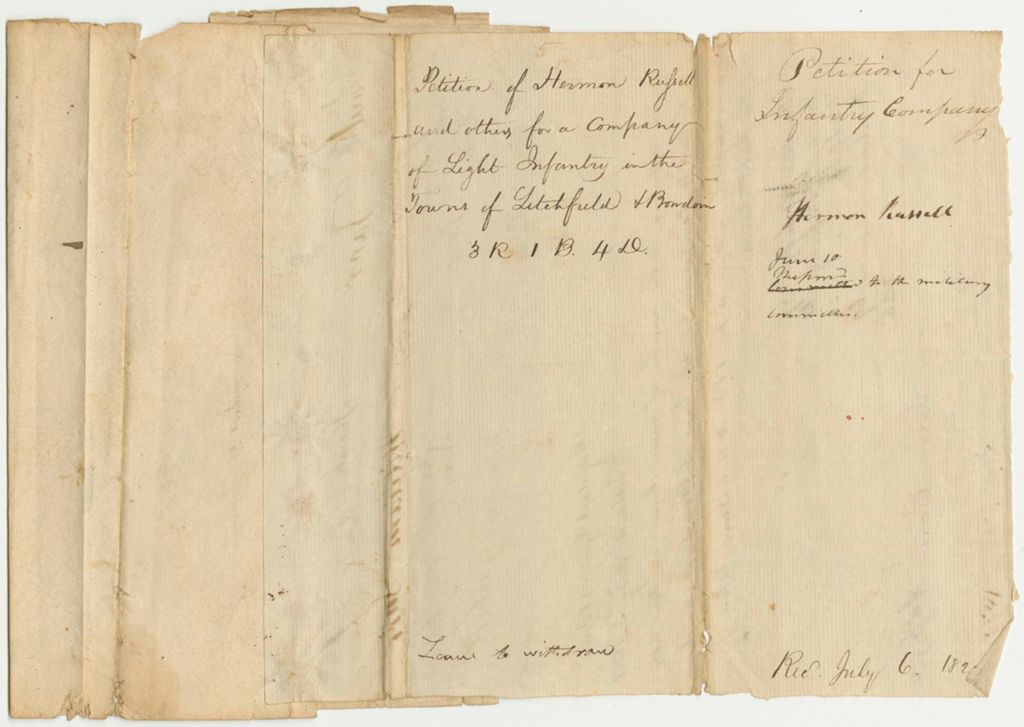 5
Petition of Hermon Russell
and others for a Company
of Light Infantry in the
Towns of Litchfield & Bowdoin
3 R 1 B. 4 D.
Leave to withdraw
Petition for
Infantry Company
Hermon Russell
June 10
to the military
committee.
Rec. July 6. 182